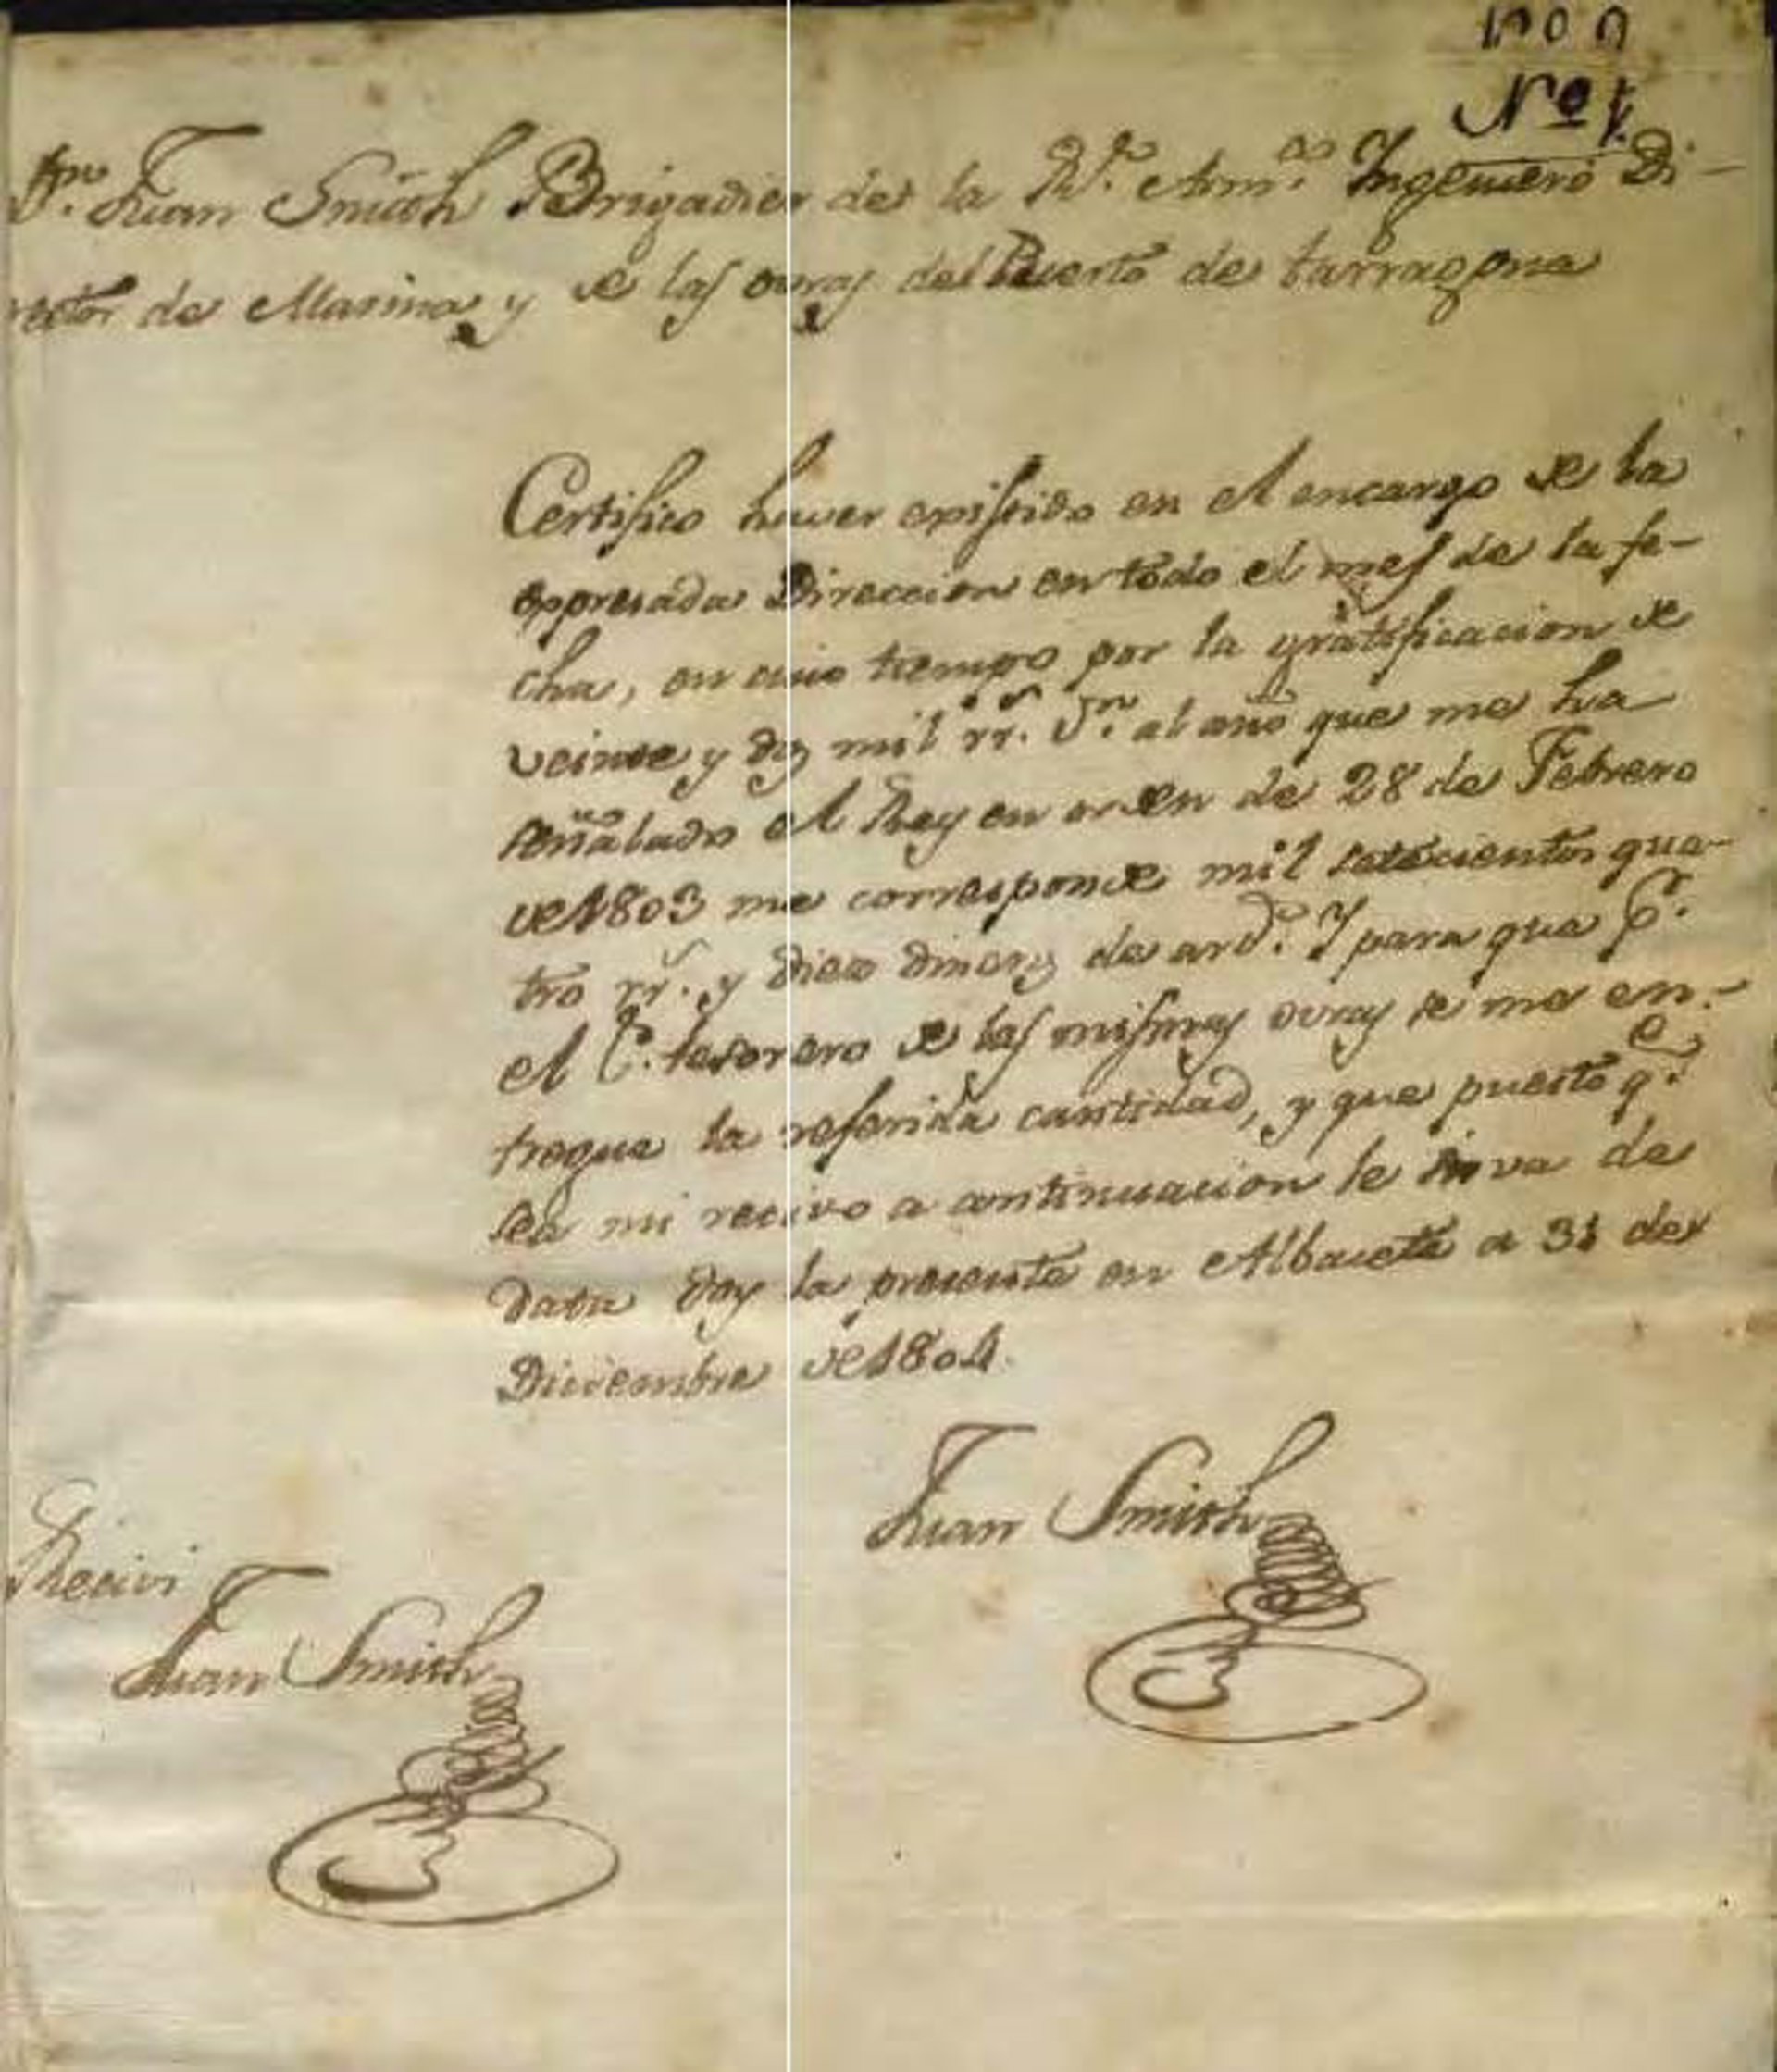 Nº 1.
Dn. Juan Smith Brigadier de la Rl. Armda. Ingeniero Di-
rector de Marina y de las ovras del Puerto de tarragona
Certifico haver existido en el encargo de la
expresada Direccion en todo el mes de la fe-
cha, en cuio tiempo por la gratificacion de
veinte y dos mil rr. Vn. al año que me ha
señalado el Rey en orden de 28 de Febrero
de 1803 me corresponde mil setecientos qua-
tro rr. y diez dineros de ard. Y para que Pr.
el Sr. tesorero de las mismas ovras se me en-
tregue la referida cantidad, y que puesto qe.
sea mi recivo a continuacion le sirva de
data doy la presente en Albacete a 31 de
Diciembre de 1804.
Juan Smith
Recivi
Juan Smith